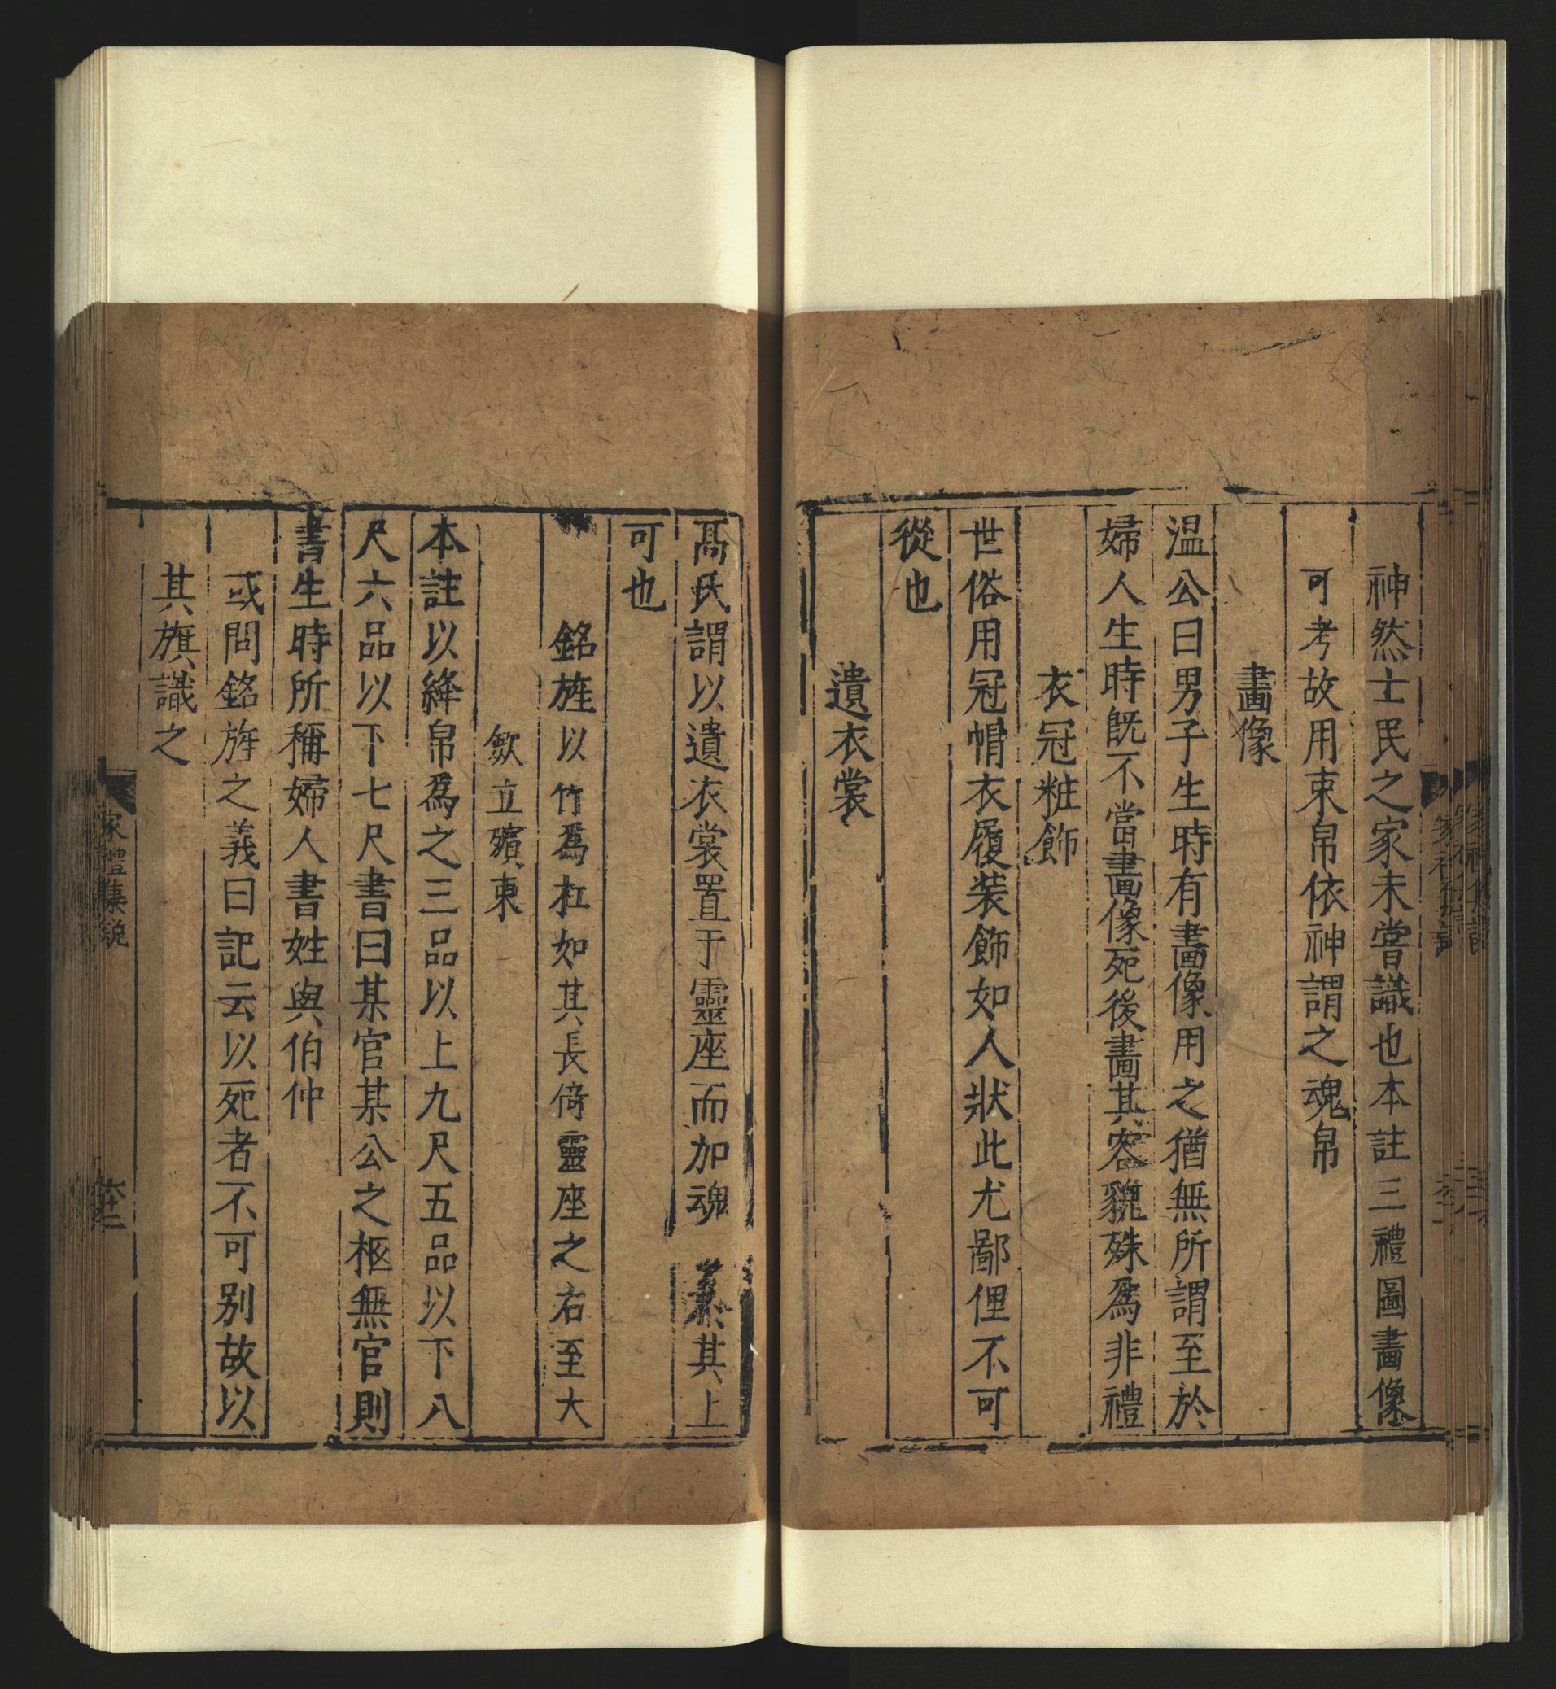 神然士民之家未嘗識也本註三禮圖畫像
可考故用束帛依神謂之魂帛
畫像
温公曰男子生時有畫像用之猶無所謂至於
婦人生時旣不當畫像死後畫其容貌殊爲非禮
衣冠粧飾
世俗用冠帽衣履装飾如人狀此尤鄙俚不可
從也
遺衣裳
髙氏謂以遺衣裳置于靈座而加魂
其上
可也
銘旌以竹爲杠如其長倚靈座之右至大
斂立殯東
本註以絳帛爲之三品以上九尺五品以下八
尺六品以下七尺書曰某官某公之柩無官則
書生時所稱婦人書姓與伯仲
或問銘旌之義曰記云以死者不可别故以
其旗識之
家禮集說